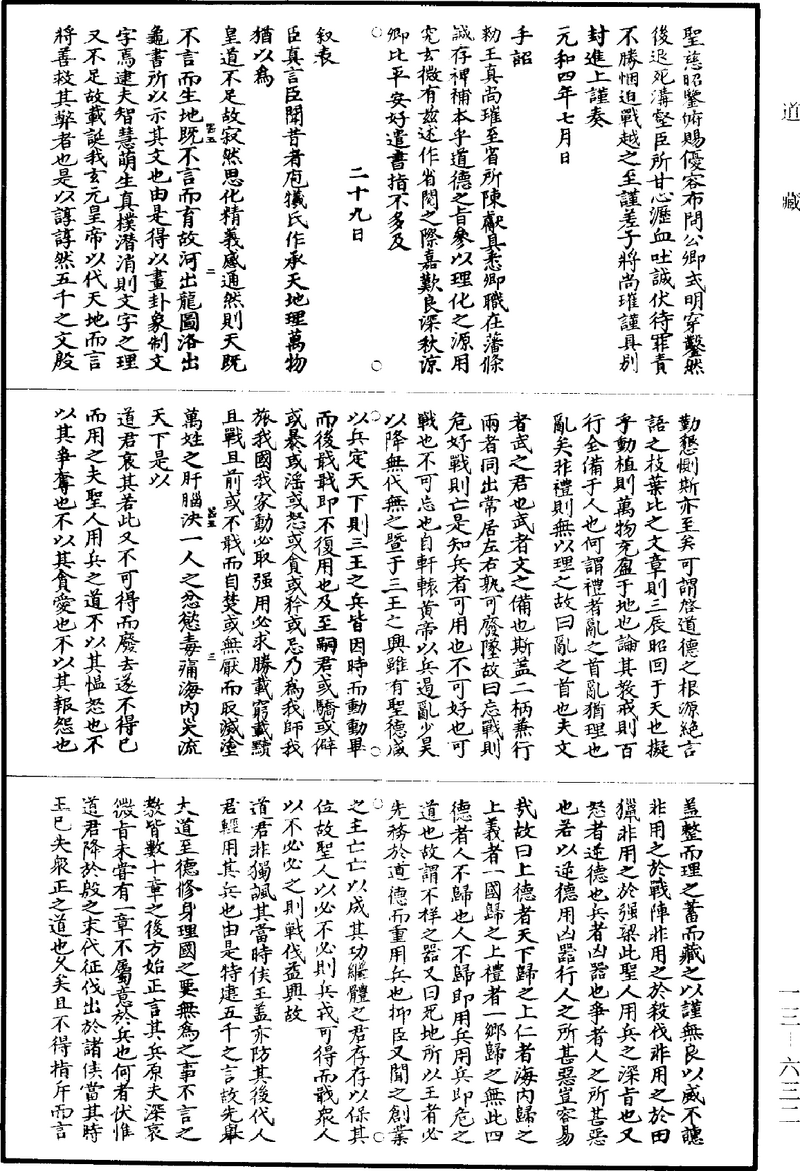 道藏
聖慈昭鑒俯賜優容布問公卿式明穿鑿然
後退死溝壑臣所甘心瀝血吐誠伏待罪責
不勝悃迫戰越之至謹差子將尚璀謹具別
封進上謹奏
元和四年七月日
手詔
勑王真尚璀至省所陳獻具悉卿職在藩條
誠存裨補本乎道德之旨參以理化之源用
究玄微有兹述作省閱之際嘉歎良深秋涼
卿比平安好遣書指不多及
二十九日
叙表
臣真言臣聞昔者庖犧氏作承天地理萬物
猶以為
皇道不足故寂然思化精義感通然則天既
不言而生地既不言而育故河出龍圖洛出
龜書所以示其文也由是得以畫卦象制文
字焉逮夫智慧萌生真樸潜消則文字之理
又不足故載誕我玄元皇帝以代天地而言
將善救其弊者也是以諄諄然五千之文殷
勤懇惻斯亦至矣可謂啓道德之根源絕言
語之枝葉比之文章則三辰昭回于天也擬
乎動植則萬物充盈于地也論其教戒則百
行全備于人也何謂禮者亂之首亂猶理也
亂矣非禮則無以理之故曰亂之首也夫文
者武之君也武者文之備也斯盖二柄兼行
兩者同出常居左右孰可廢墜故曰忘戰則
危好戰則亡是知兵者可用也不可好也可
戰也不可忘也自軒轅黃帝以兵遏亂少昊
以降無代無之暨于三王之興雖有聖德咸
以兵定天下則三王之兵皆因時而動動畢
而後戢戢即不復用也及至嗣君或驕或僻
或暴或淫或怒或貪或矜或忌乃為我師我
旅我國我家動必取强用必求勝載窮載黷
且戰且前或不戢而自焚或無厭而取滅塗
萬姓之肝腦決一人之忿慾毒痛海内灾流
天下是以
道君哀其若此又不可得而廢去遂不得已
而用之夫聖人用兵之道不以其慍怨也不
以其爭奪也不以其貪愛也不以其報怨也
盖整而理之蓄而藏之以謹無良以威不譓
非用之於戰陣非用之於殺伐非用之於田
獵非用之於强梁此聖人用兵之深旨也又
怒者逆德也兵者凶器也爭者人之所甚惡
也若以逆德用凶器行人之所甚惡豈容易
哉故曰上德者天下歸之上仁者海内歸之
上義者一國歸之上禮者一鄉歸之無此四
德者人不歸也人不歸即用兵用兵即危之
道也故謂不祥之器又曰死地所以王者必
先務於道德而重用兵也抑臣又聞之創業
之主亡亡以成其功繼體之君存存以保其
位故聖人以必不必則兵戎可得而戢衆人
以不必必之則戰伐益興故
道君非獨諷其當時侯王盖亦防其後代人
君輕用其兵也由是特建五千之言故先舉
大道至德修身理國之要無為之事不言之
教皆數十章之後方始正言其兵原夫深衷
微旨未嘗有一章不屬意於兵也何者伏惟
道君降於殷之末代征伐出於諸侯當其時
王已失衆正之道也久矣且不得指斥而言
一三—六三二